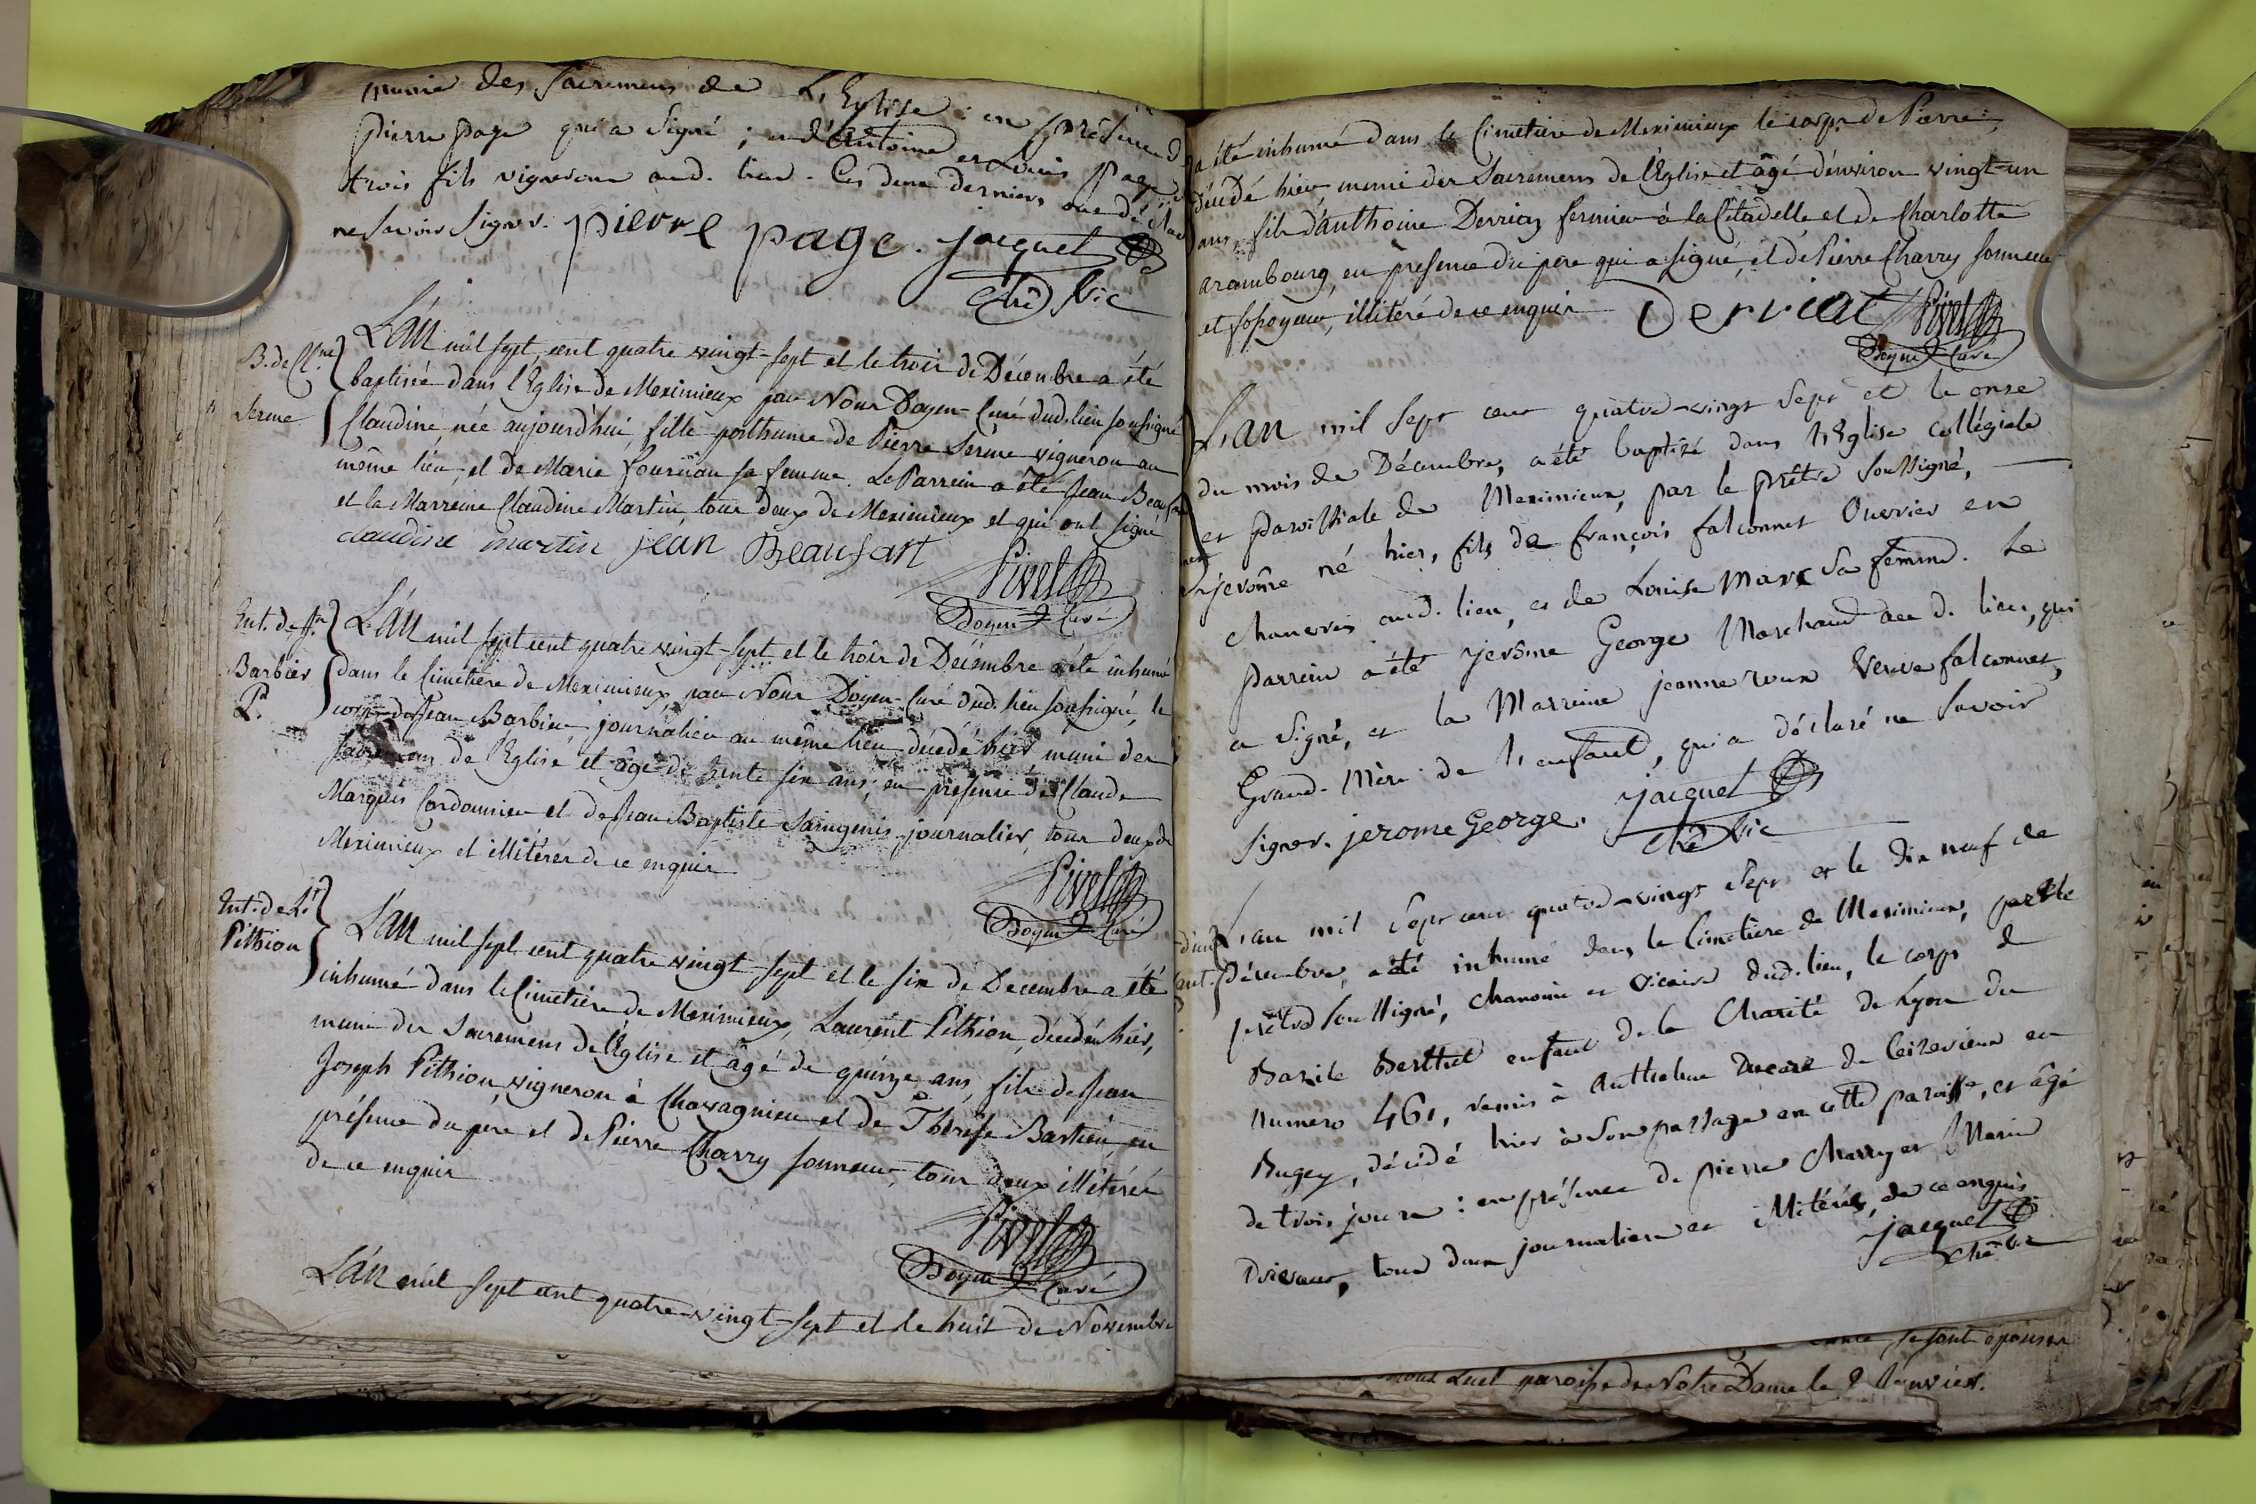 munie des Sacremens de L'Eglise : en présence de
pierre page qui a Signé ; et d'Antoine et Louis Page
trois fils vignerons aud. lieu. Les deux derniers ont déclaré
ne Savoir Signer. pierre page. jacquet
che Vic
B. de Cl.ne
Serme
L'an mil sept cent quatre vingt-sept et le trois de Décembre a été
baptisée dans l'Eglise de Meximieux par Nous Doyen-Curé dud. lieu soussigné
Claudine née aujourd'hui, fille posthume de Pierre Serme vigneron au
même lieu, et de Marie fournon sa femme. Le Parrein a été Jean Beaufart
et la Marreine Claudine Martin, tous deux de Meximieux et qui ont signé
claudine martin jean Beaufart
Pivet
Doyen Curé
Ent. de Jn
Barbier
L'an mil sept cent quatre vingt-sept et le trois de Décembre a été inhumé
dans le Cimetière de Meximieux, par Nous Doyen-Curé dud. lieu soussigné, le
corps de Jean Barbier, journalier au même lieu décédé hier, muni des
Sacremens de l'Eglise et âgé de trente six ans, en présence de Claude
Marquis Cordonnier et de Jean Baptiste Saingenis journalier, tous deux de
Meximieux et illitérés de ce enquis
Pivet
Doyen Curé
Ent. de Lt
Pithion
L'an mil sept cent quatre vingt-sept et le six de Decembre a été
inhumé dans le Cimetière de Meximieux, Laurent Pithion, décédé hier,
muni des Sacremens de l'Eglise et âgé de quinze ans, fils de Jean
Joseph Pithion, vigneron à Chavagnieu et de Thérèse Bastien, en
présence du père et de Pierre Charry sonneur, tous deux illitérés
de ce enquis
Pivet
Doyen Curé
L'an mil sept cent quatre-vingt-sept et le huit de Novembre
a été inhumé dans le Cimetière de Meximieux le corps de Pierre,
décédé hier muni des Sacremens de l'Eglise et âgé d'environ vingt-un
ans, fils d'Anthoine Derriaz fermier à la Citadelle et de Charlotte
arambourg, en présence du père qui a signé, et de Pierre Charry sonneur
et fossoyeur, illitéré de ce enquis Derriat Pivet
Doyen Curé
L'an mil Sept cent quatre-vingt Sept et le onze
du mois de Décembre, a été baptisé dans L'Eglise Collégiale
et paroissiale de Meximieux, par le prêtre Soussigné,
jerôme né hier, fils de françois falconnet Ouvrier en
chanvres aud. lieu, et de Louise Marc Sa femme. Le
parrein a été jerôme George Marchand aud. lieu, qui
a Signé, et la Marreine jeanne roux Veuve falconnet,
Grand-Mère de L'enfant, qui a déclaré ne Savoir
Signer. jerome George. jacquet
che Vic
L'an mil Sept cent quatre-vingt Sept et le dix neuf de
Décembre, a été inhumé dans le Cimetière de Meximieux, par le
prêtre Soussigné, Chanoine et vicaire dud. lieu, le corps de
Bazile Berthet enfant de la Charité de Lyon du
Numero 461, remis à Anthelme Ducare de Ceizerieux en
Bugey, décédé hier à Son passage en cette paroisse, et âgé
de trois jours : en présence de pierre Charry et Marin
Drevaux, tous deux journaliers et illitérés, de ce enquis
jacquet
che Vic
se sont épousés
paroisse de Notre Dame le 8 Janvier.